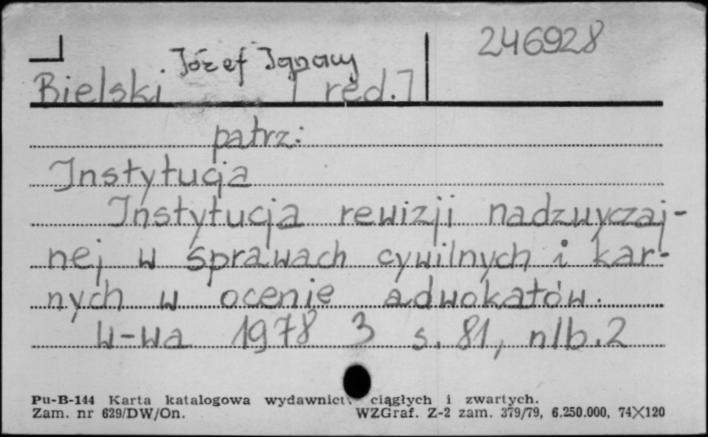 246928
Józef Ignacy
Bielski [red.]
patrz:
Instytucja
Instytucja rewizji nadzwyczaj-
nej w sprawach cywilnych i kar-
nych w ocenie adwokatów.
W-wa 1978 3 s. 81, nlb. 2
Pu-B-144 Karta katalogowa wydawnict ciągłych i zwartych.
Zam. nr 629/DW/On. WZGraf. Z-2 zam. 379/79, 6.250.000, 74×120